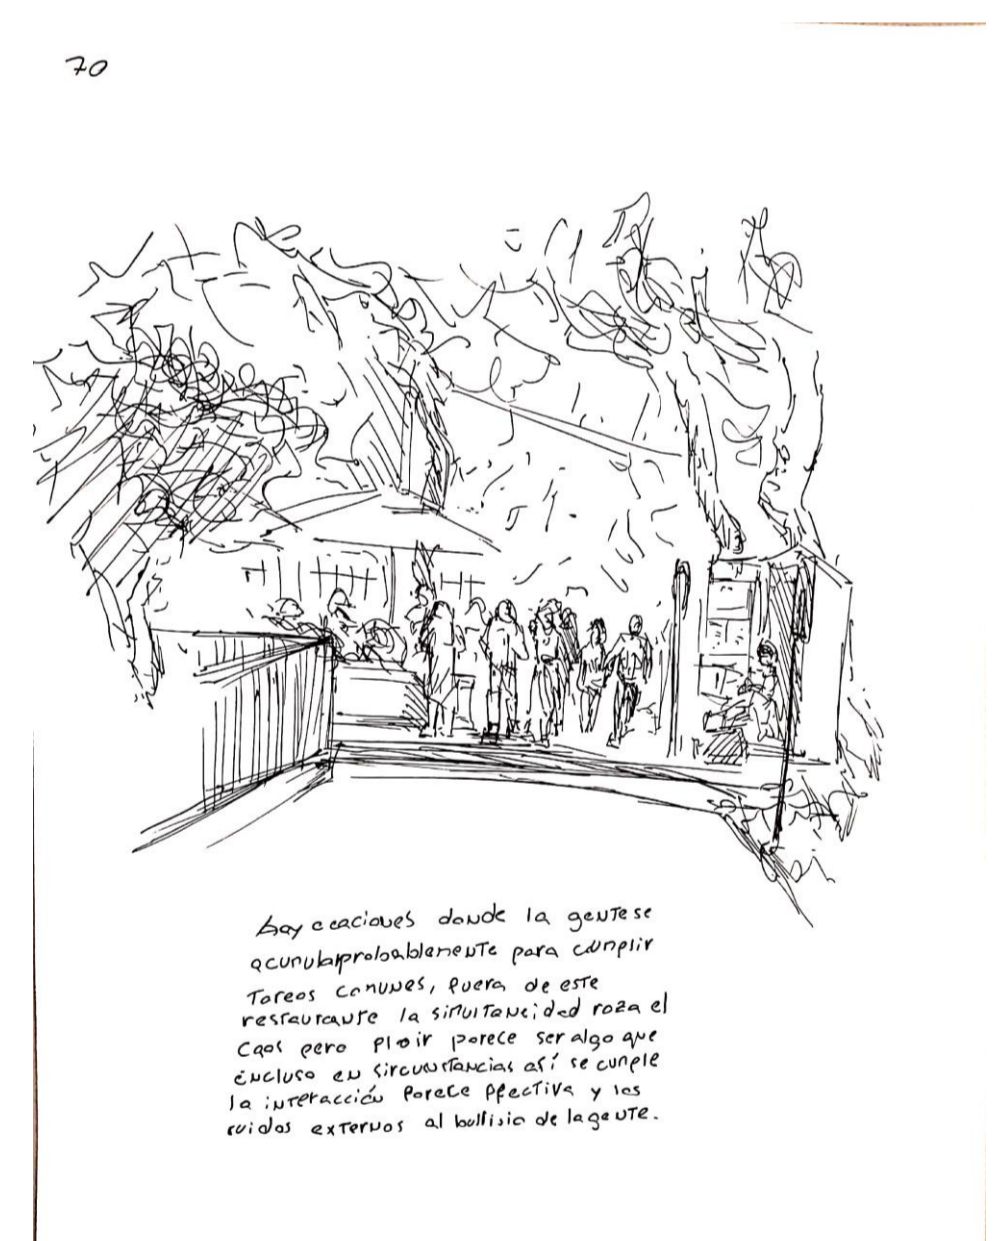 70
hay ocaciones donde la gente se
acumula probablemente para cumplir
tareas comunes, fuera de este
restaurante la simultaneidad roza el
caos pero fluir parece ser algo que
incluso en sircunstancias así se cumple
la interacción parece efectiva y los
ruidos externos al bullisio de la gente.